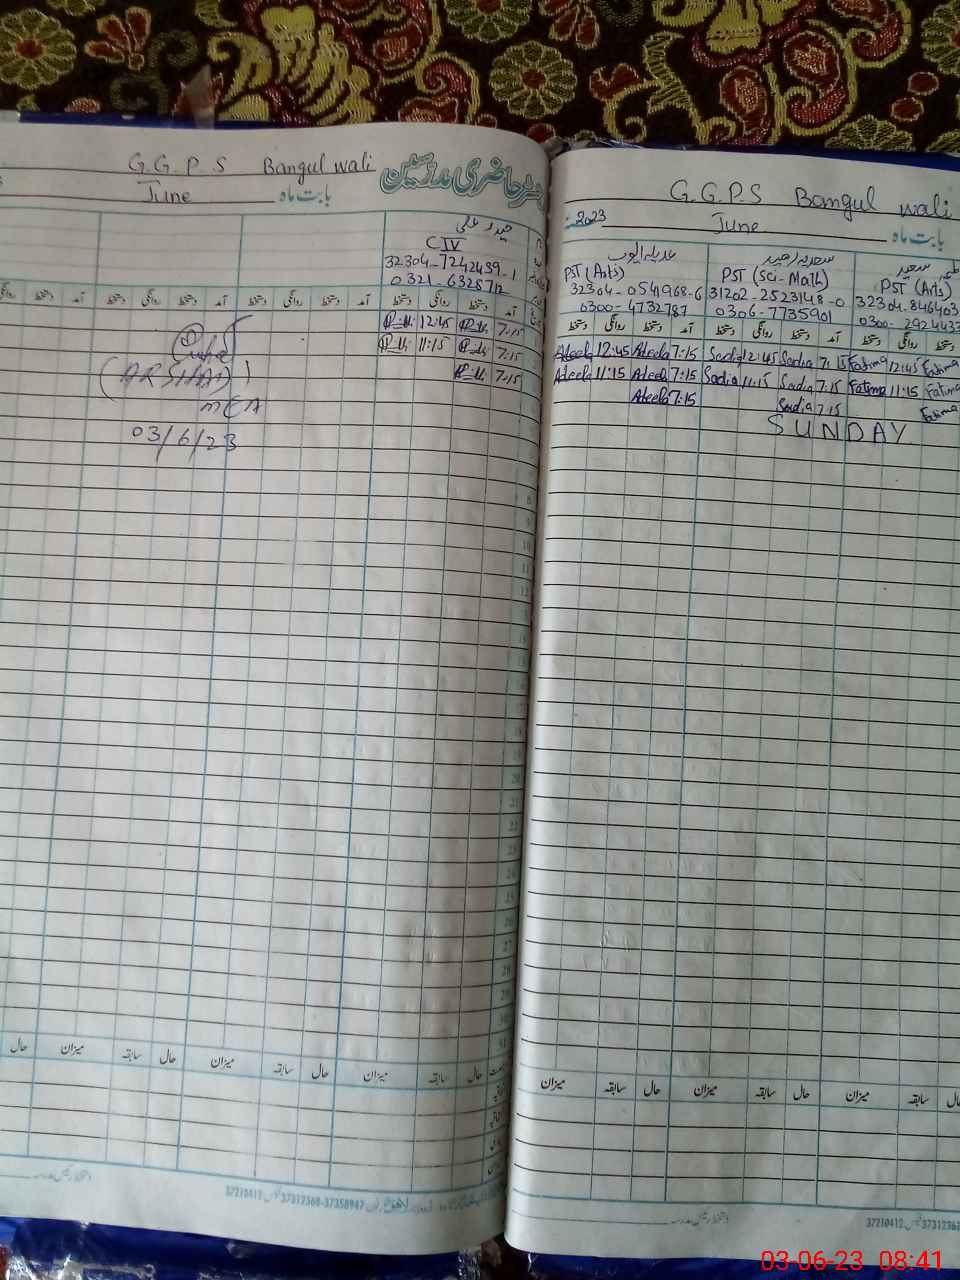 G.G.P.S Bangul wali
رجسٹر حاضری مدرسین
June بابت ماہ
حیدر علی
C IV
32304-7242439-1
دستخط روانگی دستخط آمد
12:45 7:15
11:15 7:15
7:15
(ARSHAD)
03/6/23
G.G.P.S Bangul wali
2023
June بابت ماہ
عدیلہ ایوب
PST (Arts)
32304-0541968-6
0300-4732787
سعدیہ رشید
PST (Sci-Math)
31202-2523148-0
0306-7735901
سعید
PST (Arts)
32304-846403
0300-2924433
دستخط روانگی دستخط آمد دستخط روانگی دستخط آمد دستخط روانگی دستخط
Adeela 12:45 Adeela 7:15 Sadia 12:45 Sadia 7:15 Fatima 12:45 Fatima
Adeela 11:15 Adeela 7:15 Sadia 11:15 Sadia 7:15 Fatima 11:15 Fatima
Adeela 7:15 Sadia 7:15 Fatima
SUNDAY
8
9
10
11
12
15
17
20
21
22
23
24
25
26
27
28
29
30
31
حال میزان سابقہ حال میزان سابقہ حال میزان سابقہ حال
میزان سابقہ حال میزان سابقہ حال میزان سابقہ حال
37210412 فیکس 37312368-37358947 لاہور فون
دستخط رئیس مدرسہ
37210412 فیکس
03-06-23 08:41